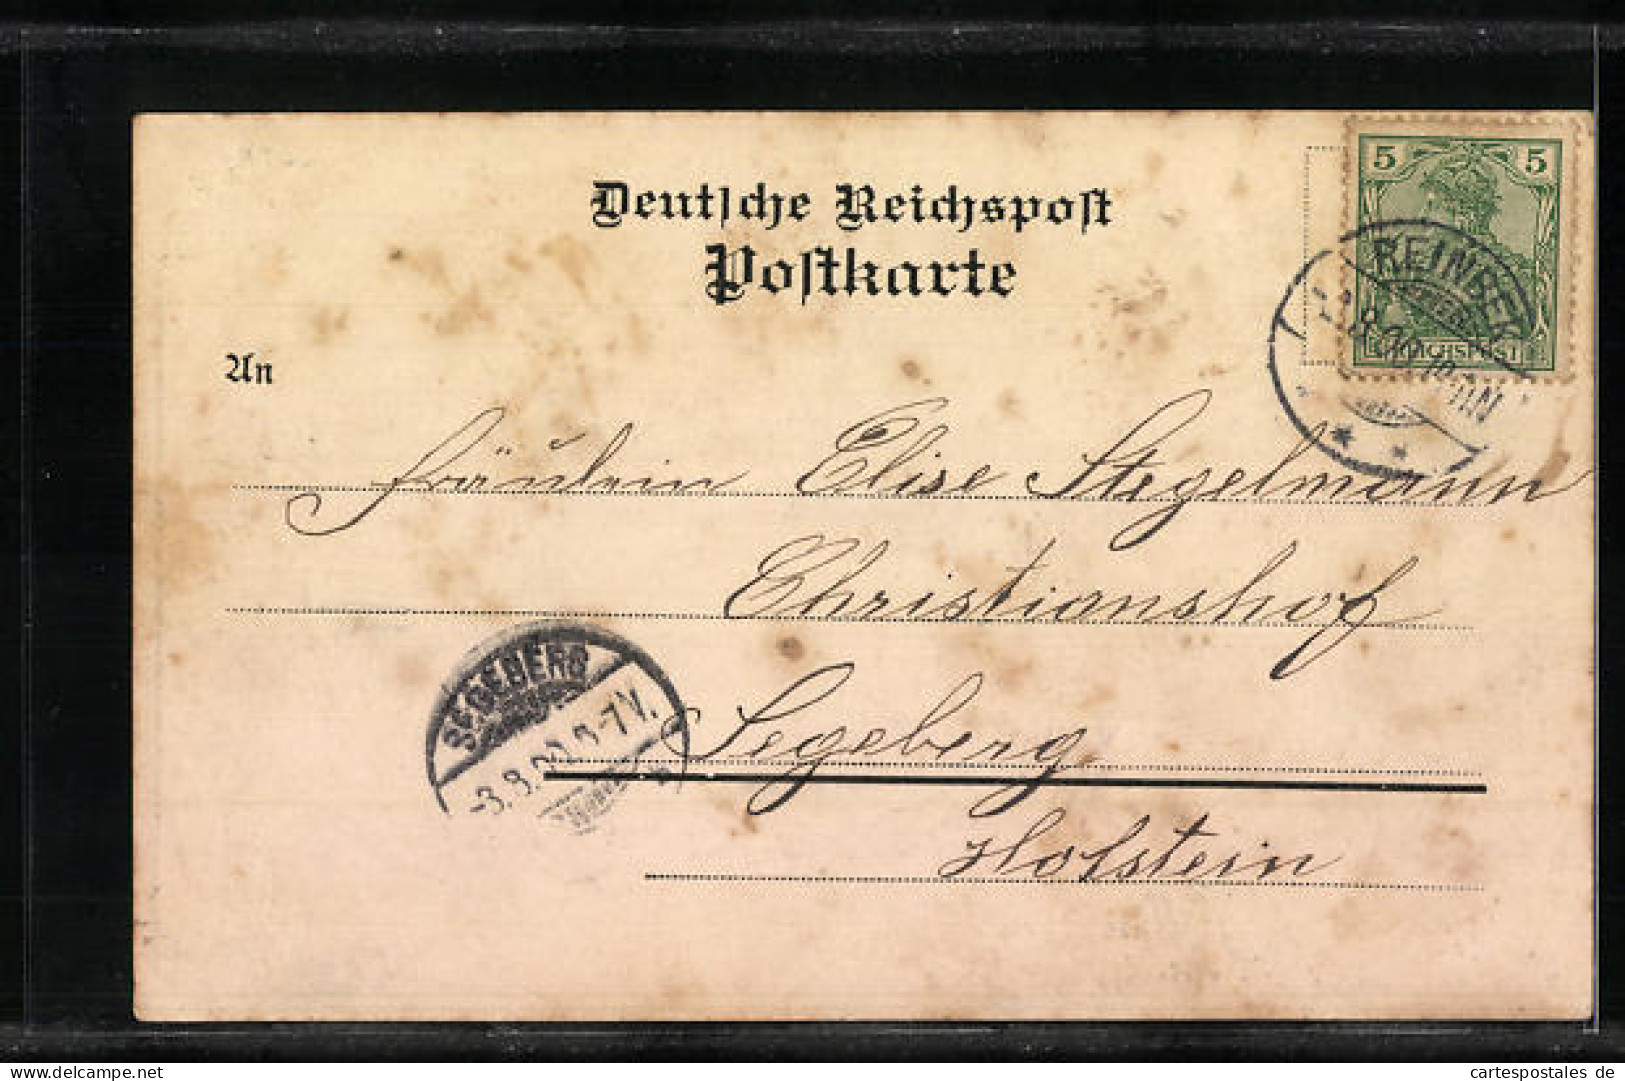 Deutsche Reichspost
Postkarte
5 5
REINBEK
REICHSPOST
An
Fräulein Elise Stegelmann
Christianshof
SEGEBERG
-3.8.00.6-7V.
Segeberg
Holstein
cartespostales de